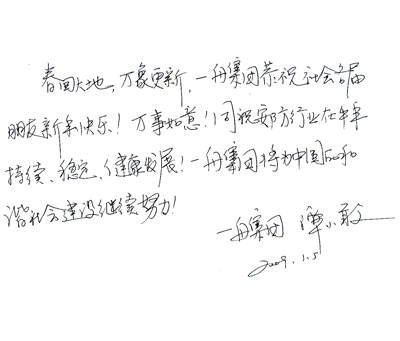 春回大地,万象更新,一舟集团恭祝社会各届
朋友新年快乐!万事如意!同祝安防行业在牛年
持续、稳定、健康发展!一舟集团将为中国的和
谐社会建设继续努力!
一舟集团 谭小敏
2009.1.5